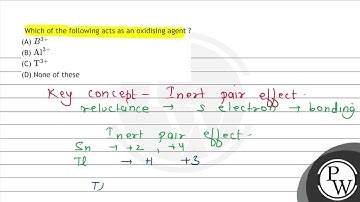 Which of the following acts as an oxidising agent ?
(A) B³⁺
(B) Al³⁺
(C) T³⁺
(D) None of these
Key concept - Inert pair effect.
reluctance → s electron → bonding
Inert pair effect.
Sn → +2 , +4
Tl → +1 +3
TJ
PW